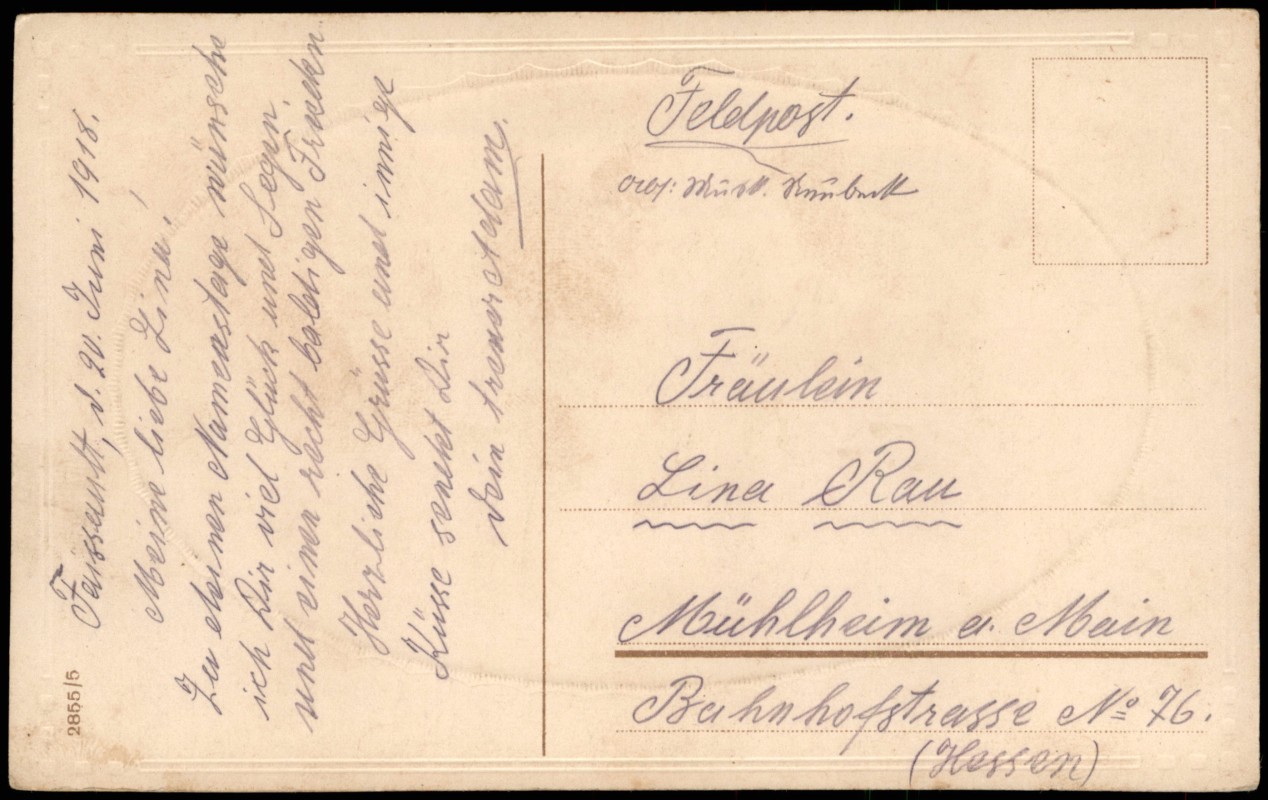 d. 20. Juni 1918.
Meine liebe Lina!
Zu deinem Namenstage wünsche
ich Dir viel Glück und Segen.
und einen recht baldigen Frieden
Herzliche Grüsse und innige
Küsse sendet Dir
Dein treuer Adam.
2855/5
Feldpost.
Musk.
Fräulein
Lina Rau
Mühlheim a. Main
Bahnhofstrasse No 76.
(Hessen)